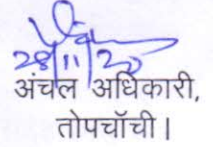 28/11/20
अंचल अधिकारी,
तोपचॉची।